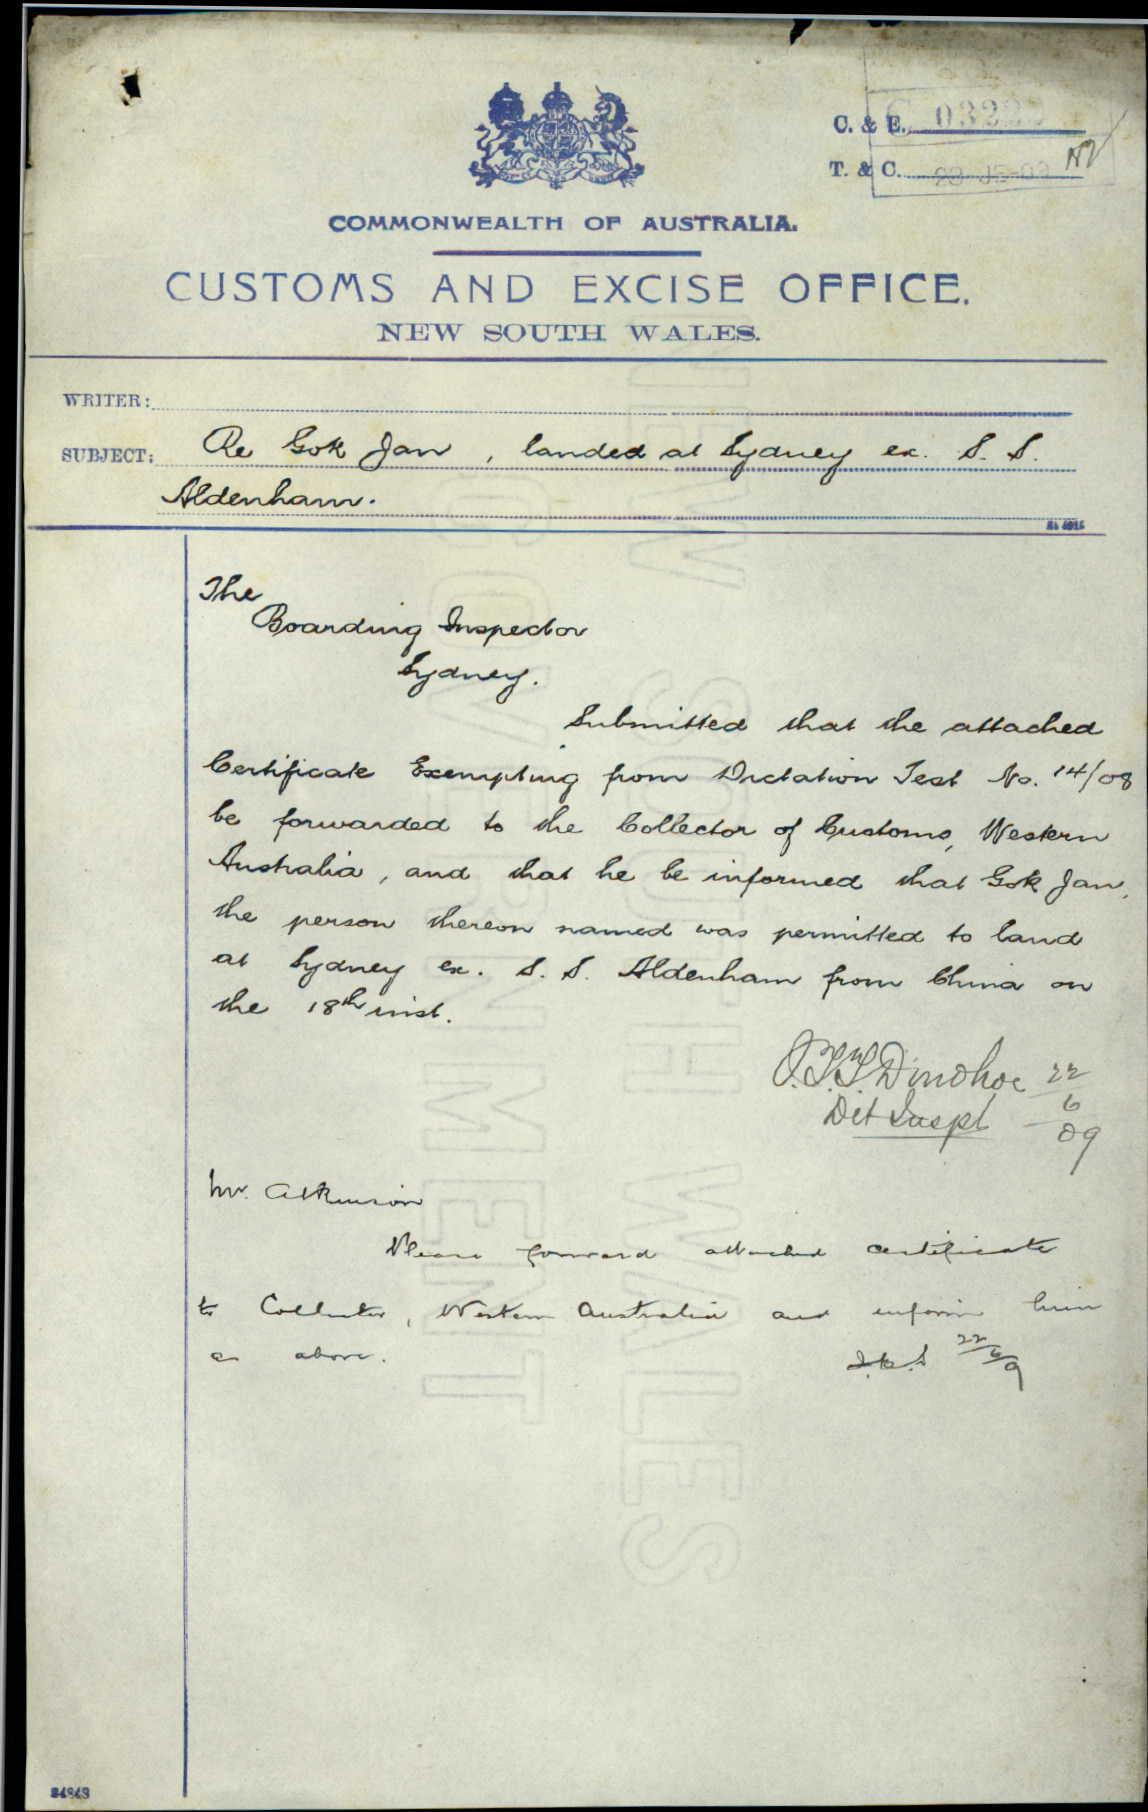 C. & E.
T. & C.
COMMONWEALTH OF AUSTRALIA.
CUSTOMS AND EXCISE OFFICE.
NEW SOUTH WALES.
WRITER:
SUBJECT: Re Gok Jan, landed at Sydney ex. S. S.
Aldenham.
The
Boarding Inspector
Sydney.
Submitted that the attached
Certificate Exempting from Dictation Test No. 14/08
be forwarded to the Collector of Customs, Western
Australia, and that he be informed that Gok Jan,
the person thereon named was permitted to land
at Sydney ex. S. S. Aldenham from China on
the 18th inst.
Donohoe 22
Det Inspt 6
09
Mr. Atkinson
Please forward attached certificate
to Collector, Western Australia and inform him
as above. 22/6/9
NEW SOUTH WALES
GOVERNMENT